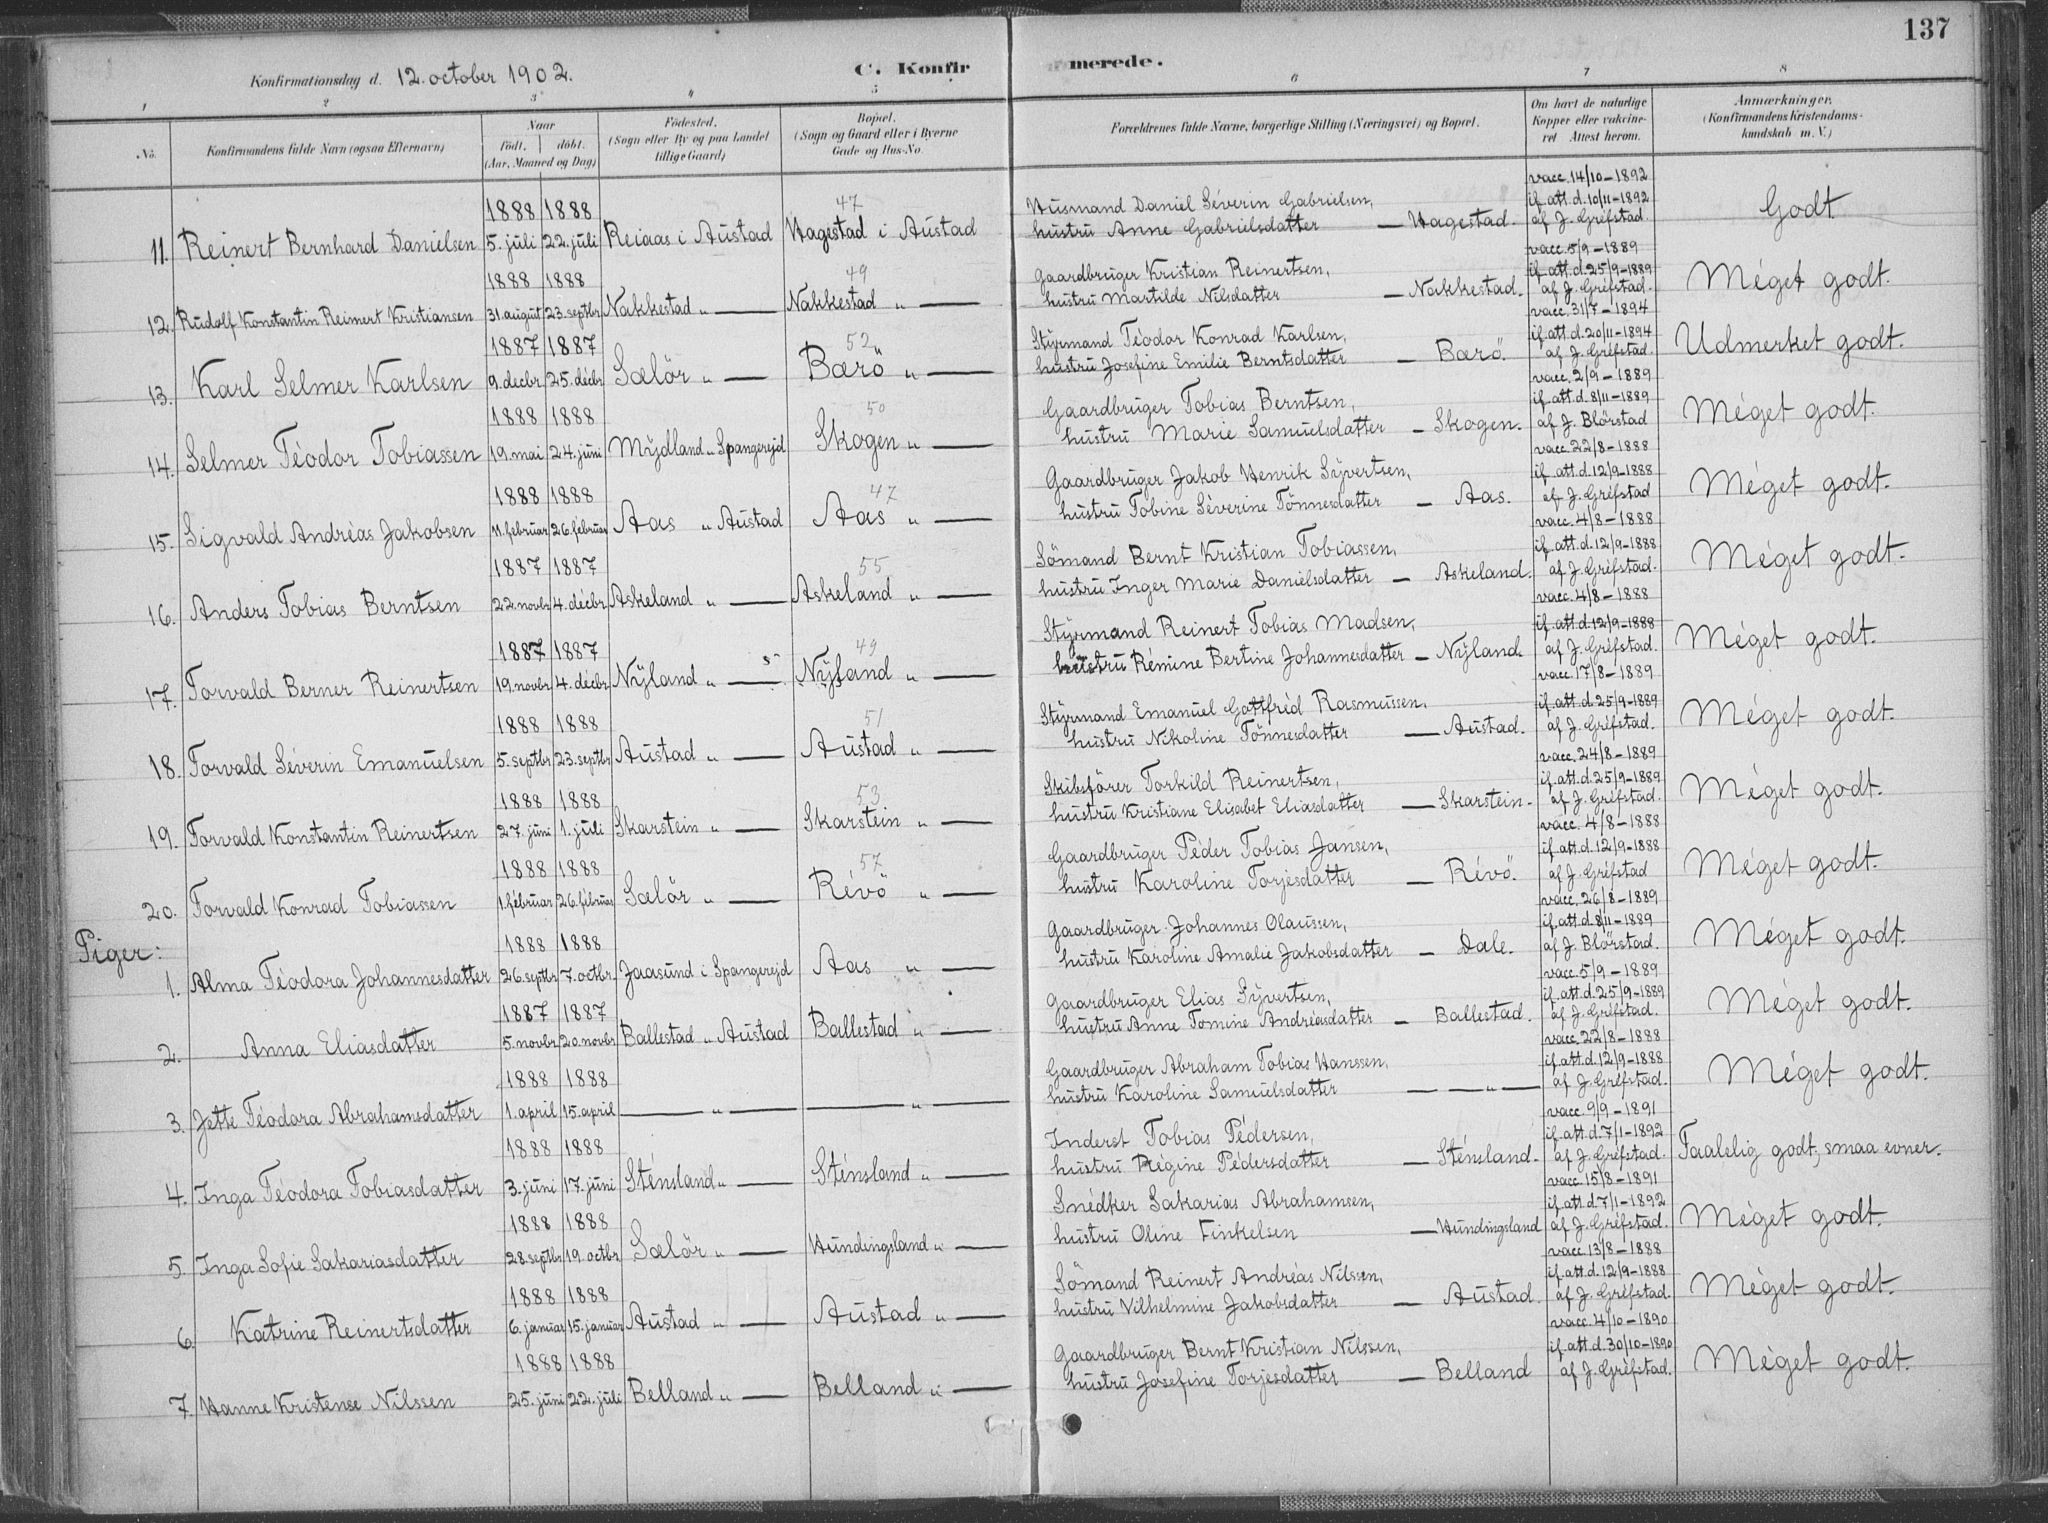 137
Konfirmationsdag d. 12. october 1902.
C. Konfirmerede.
1 2 3 4 5 6 7 8
No. Konfirmandens fulde Navn (ogsaa Efternavn) Naar födt. döbt. (Aar, Maaned og Dag) Födested. (Sogn eller By og paa Landet tillige Gaard) Bopæl. (Sogn og Gaard eller i Byerne Gade og Hus-No. Forældrenes fulde Navne, borgerlige Stilling (Næringsvei) og Bopæl. Om havt de naturlige Kopper eller vakcineret Attest herom. Anmærkninger. (Konfirmandens Kristendomskundskab m. V.)
11. Reinert Bernhard Danielsen 1888 5. juli 1888 22. juli Reiaas i Austad 47 Hagestad i Austad Husmand Daniel Séverin Gabrielsen, hustru Anne Gabrielsdatter — Hagestad. vacc. 14/10-1892 if. att. d. 10/11-1892 af J. Gréfstad Godt
12. Rudolf Konstantin Reinert Kristiansen 1888 31. august 1888 23. septbr Nakkestad " — 49 Nakkestad " — Gaardbruger Kristian Reinertsen, hustru Martilde Nilsdatter — Nakkestad. vacc. 5/9-1889 if. att. d. 25/9-1889 af J. Gréfstad. Méget godt.
13. Karl Selmer Karlsen 1887 9. decbr 1887 25. décbr Sælör " — 52 Bærö " — Styrmand Téodor Konrad Karlsen, hustru Josefine Emilie Berntsdatter — Bærö. vacc. 31/7-1894 if. att. d. 20/11-1894 af J. Gréfstad. Udmerket godt.
14. Selmer Téodor Tobiassen 1888 19. mai 1888 24. juni Mydland " Spangerejd 50 Skogen " — Gaardbruger Tobias Berntsen, hustru Marie Samuelsdatter — Skogen. vacc. 2/9-1889 if. att. d. 8/11-1889 af J. Blörstad Méget godt.
15. Sigvald Andréas Jakobsen 1888 11. februar 1888 26. februar Aas " Austad 47 Aas " — Gaardbruger Jakob Henrik Syvertsen, hustru Tobine Séverine Tönnesdatter — Aas. vacc. 22/8-1888 if. att. d. 12/9-1888 af J. Gréfstad Méget godt.
16. Anders Tobias Berntsen 1887 22. novbr 1887 4. décbr Askeland " — 55 Askeland " — Sömand Bernt Kristian Tobiassen, hustru Inger Marie Danielsdatter — Askeland. vacc. 4/8-1888 if. att. d. 12/9-1888 af J. Gréfstad. Méget godt.
17. Torvald Berner Reinertsen 1887 19. novbr 1887 4. décbr Nyland " — 49 Nyland " — Styrmand Reinert Tobias Madsen, hustru Rémine Bertine Johannesdatter — Nyland. vacc. 4/8-1888 if. att. d. 12/9-1888 af J. Gréfstad. Méget godt.
18. Torvald Séverin Emanuelsen 1888 5. septbr 1888 23. septbr Austad " — 51 Austad " — Styrmand Emanuel Gottfréd Rasmussen, hustru Nikoline Tönnesdatter — Austad. vacc. 17/8-1889 if. att. d. 25/9-1889 af J. Gréfstad. Méget godt.
19. Torvald Konstantin Reinertsen 1888 27. juni 1888 1. juli Skarstein " — 53 Skarstein " — Skibsförer Torkild Reinertsen, hustru Kristiane Elisabet Eliasdatter — Skarstein. vacc. 24/8-1889 if. att. d. 25/9-1889 af J. Gréfstad. Méget godt.
20. Torvald Konrad Tobiassen 1888 1. februar 1888 26. februar Sælör " — 57 Révö " — Gaardbruger Péder Tobias Jansen, hustru Karoline Torjesdatter — Révö. vacc. 4/8-1888 if. att. d. 12/9-1888 af J. Gréfstad Méget godt.
Piger:
1. Alma Téodora Johannesdatter 1888 26. septbr 1888 7. octbr. Jaasund i Spangerejd Aas " — Gaardbruger Johannes Olaussen, hustru Karoline Amalie Jakobsdatter — Dale. vacc. 26/8-1889 if. att. d. 8/11-1889 af J. Blörstad. Méget godt.
2. Anna Eliasdatter 1887 5. novbr 1887 20. novbr Ballestad " Austad Ballestad " — Gaardbruger Elias Syvertsen, hustru Anne Tomine Andréasdatter — Ballestad. vacc. 5/9-1889 if. att. d. 25/9-1889 af J. Gréfstad. Méget godt.
3. Jette Téodora Abrahamsdatter 1888 1. april 1888 15. april — " — — " — Gaardbruger Abraham Tobias Hanssen, hustru Karoline Samuelsdatter — — " — vacc. 22/8-1888 if. att. d. 12/9-1888 af J. Gréfstad. Méget godt.
4. Inga Téodora Tobiasdatter 1888 3. juni 1888 17. juni Sténsland " — Sténsland " — Inderst Tobias Pédersen, hustru Régine Pédersdatter — Sténsland. vacc. 9/9-1891 if. att. d. 7/1-1892 af J. Gréfstad. Taalelig godt, smaa evner.
5. Inga Sofie Sakariasdatter 1888 28. septbr 1888 19. octbr. Sælör " — Hundingsland " — Snédker Sakarias Abrahamsen, hustru Oline Finkelsen — Hundingsland vacc. 15/8-1891 if. att. d. 7/1-1892 af J. Gréfstad. Méget godt.
6. Katrine Reinertsdatter 1888 6. januar 1888 15. januar Austad " — Austad " — Sömand Reinert Andréas Nilssen, hustru Vilhelmine Jakobsdatter — Austad. vacc. 13/8-1888 if. att. d. 12/9-1888 af J. Gréfstad. Méget godt.
7. Hanne Kristense Nilssen 1888 25. juni 1888 22. juli Belland " — Belland " — Gaardbruger Bernt Kristian Nilssen, hustru Josefine Torjesdatter — Belland vacc. 4/10-1890 if. att. d. 30/10-1890 af J. Gréfstad. Méget godt.